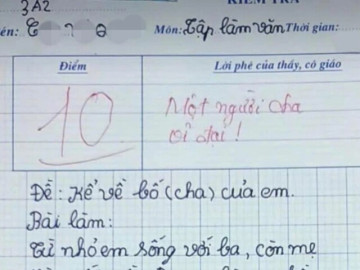 3A2
KIỂM TRA
ên: Môn: Tập làm văn Thời gian:
Điểm Lời phê của thầy, cô giáo
10 Một người cha
vĩ đại!
Đề: Kể về bố (cha) của em.
Bài làm:
Từ nhỏ em sống với ba, còn mẹ